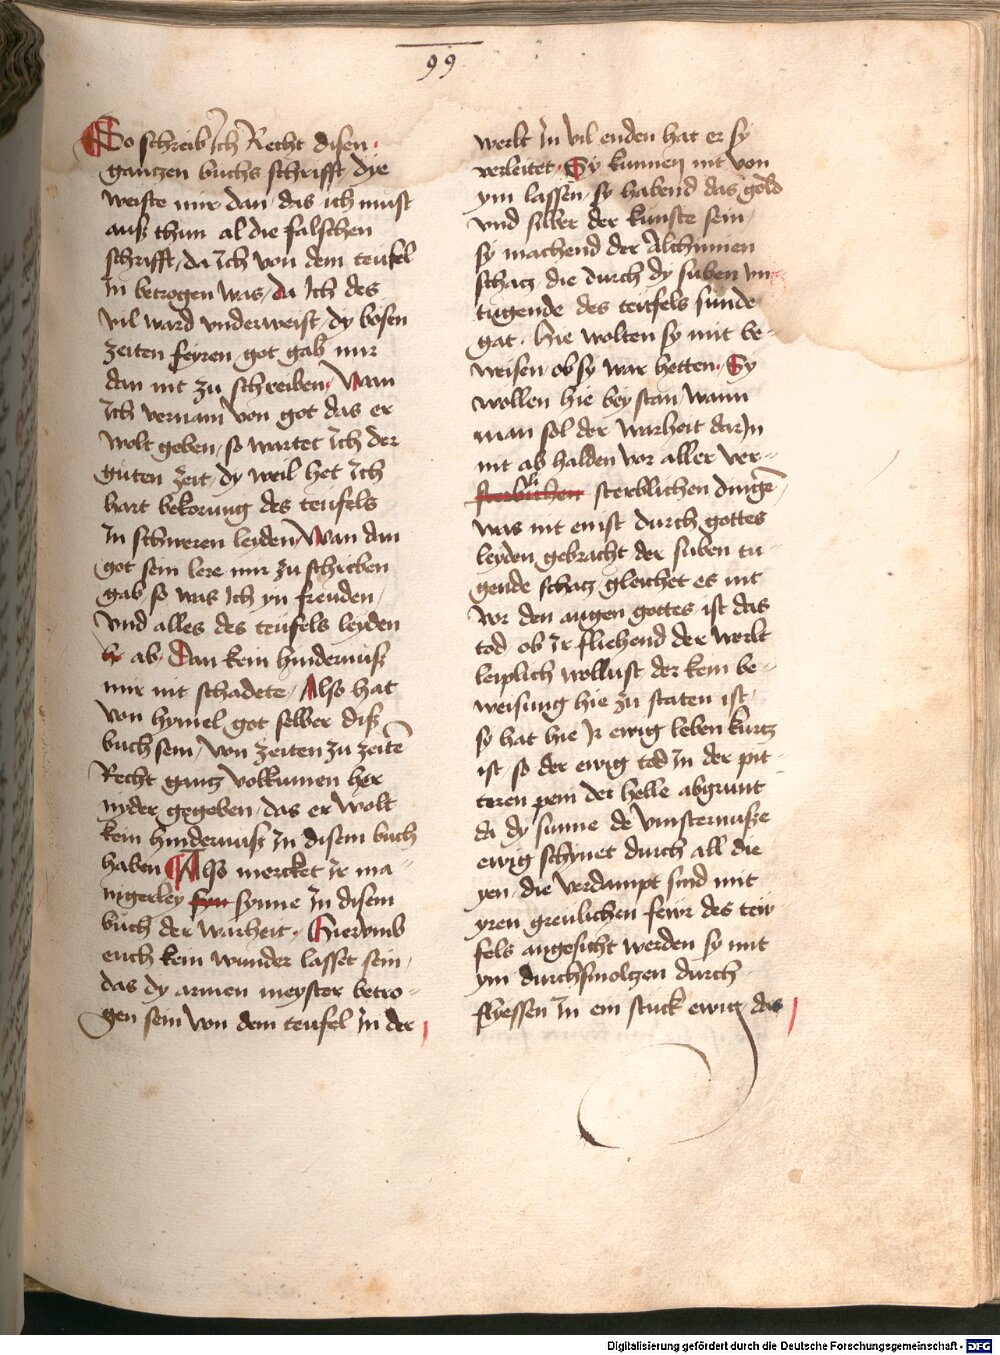 99
So schreib ich Recht disen
gantzen buchs schrifft dye
weiste mir dan / das ich must
auß thun al die falschen
schrifft / da ich von dem teufel
In betrogen was / da Ich des
vil ward vnderweist / dy bosen
zeiten feyren got gab mir
dan nit zu schreiben Wan
ich vernam von got das er
wolt geben / so wartet ich der
guten zeit / dy weil het ich
hart bekorung des teufels
In schweren leiden Wan dan
got sein lere mir zu schriben
gab so was Ich yn freuden /
vnd alles des teufels leyden
ab Dan kein hindernuß
mir nit schadete / Also hat
von hymel got selber diß
buch sein / von zeiten zu zeitē
Recht gantz volkumen her
nyder gegeben / das er wolt
kein hindernuß In disem buch
haben Also mercket ir ma
nigerley syn synne In disem
buch der warheit Hiervmb
euch kein wunder lasset sein /
das dy armen meyster betro-
gen sein von dem teufel In der
werlt In vil enden hat er sy
verleitet Sy kunnen nit von
ym lassen / sy habend das gold
vnd silber der kunste sein /
sy machend der Alchimien
schatz die durch dy suben vn
tugende des teüfels sunde
gat . Hie wolten sy mit be-
weisen / ob sy war hetten Sy
wollen hie bey stan / wann
man sol der warheit darJn
nit ab halden vor aller ver-
sterblichen dingē /
was nit einst durch gottes
leyden gebracht der suben tu-
gende schatz / gleichet es nit
vor den augen gottes ist das
tod ob ir fliehend der werlt
leiplich wollust der kein be-
weisung hie zu staten ist /
sy hat hie Jr ewig leben kurtz
ist so der ewig tod In der pit
teren pein der helle abgrunt
da dy sunne de vinsternuße
ewig schynet durch all die
yen / die verdampt sind mit
yren greulichen feur des teu
fels angesicht werden sy mit
ym durchsmoltzen durch
flyessen In ein stuck ewig das
Digitalisierung gefördert durch die Deutsche Forschungsgemeinschaft - DFG